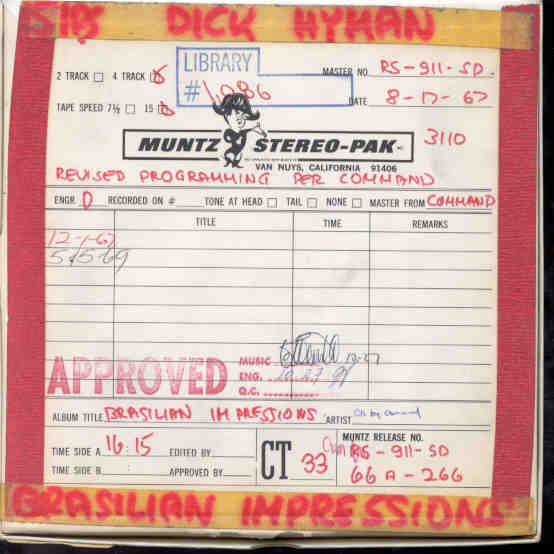 DICK HYMAN
2 TRACK 4 TRACK
LIBRARY
#1,086
MASTER NO RS-911-SD.
TAPE SPEED 7½ 15
DATE 8-17-67
MUNTZ STEREO-PAK INC
3110
VAN NUYS, CALIFORNIA 91406
REVISED PROGRAMMING PER COMMAND
ENGR. D RECORDED ON # TONE AT HEAD TAIL NONE MASTER FROM COMMAND
TITLE TIME REMARKS
12-1-67
5-5-69
APPROVED
MUSIC
ENG.
Q.C.
ALBUM TITLE BRASILIAN IMPRESSIONS ARTIST
TIME SIDE A 16:15 EDITED BY
TIME SIDE B APPROVED BY
CT 33
MUNTZ RELEASE NO.
RS-911-SD
66 A-266
BRASILIAN IMPRESSIONS